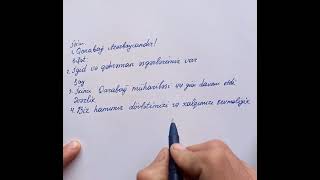 İsim
1. Qarabağ Azərbaycandır!
Sifət
2. İgid və qəhrəman əsgərlərimiz var
Say
3. İkinci Qarabağ müharibəsi 44 gün davam etdi
Əvəzlik
4. Biz hamımız dövlətimizi və xalqımızı sevməliyik